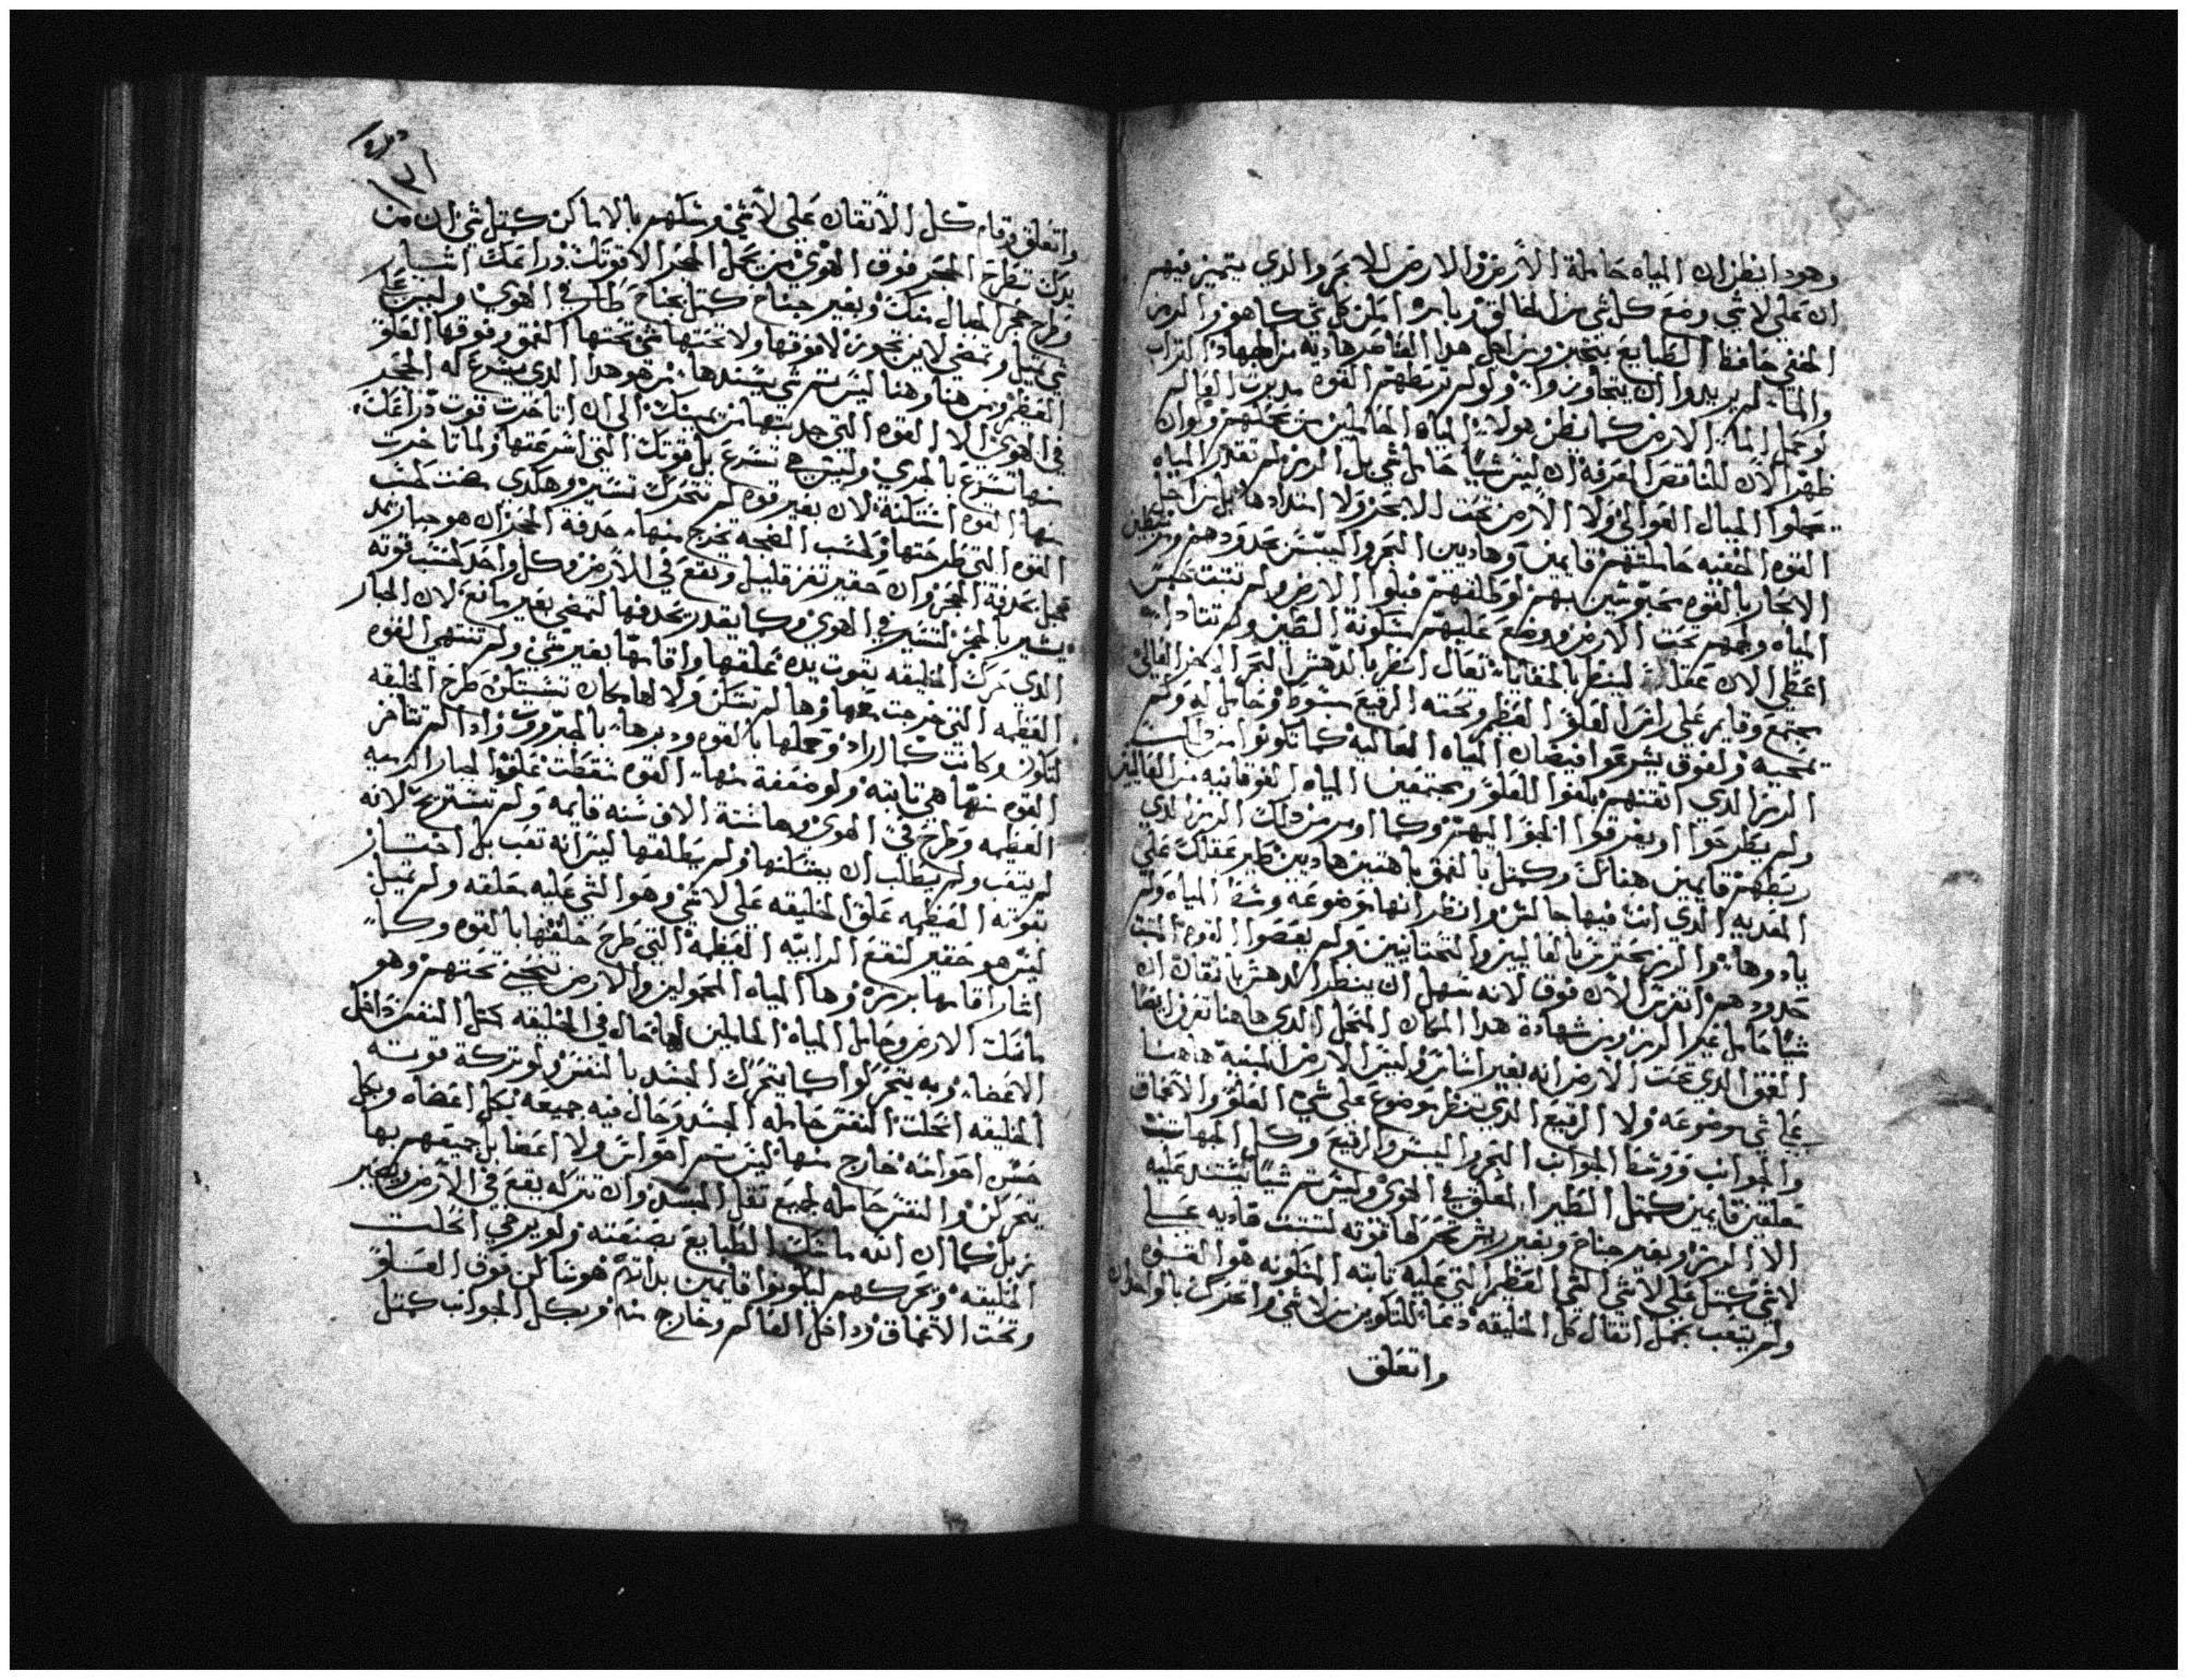 وهود انظر ان المياه حاملة الارض والارض للابحر والدي يتميز فيهم
ان على لاشي وضع كل شي من الخالق وبامره امكن كل شي كما هو والرمز
الخفي حافظ الطبايع بتخير ومن اجل هدا القاصر هاديه من الجهاد التراب
والما لم يريدوا ان يتجاوزوا ولو لم تربطهم القوه مدبرت العالم
لو حمل الما الارض كما يظن هولاء المياه الحاملين من يحملهم ولوان
ظهر الان للناقص المعرفه ان ليس شيا حامل شي بل الرمز لم تقدر المياه
يحملوا الجبال العوالي ولا الارض تحت الابحر ولا امتدادها بل من اجل
القوه الخفيه حاملتهم قايمين وهاديين البحر واليبس بحدودهم
الابحار بالقوه محبوسين بهم لو طلقهم قبلوا الارض ولم تثبت حبس
المياه وجههم تحت الارض ووضع عليهم سكونة الطين ولم تتادا
اعطي الان عقلك لينظر بالخفايا تعال انظر بالدهش البحر الاخر العالي
مجتمع وقاير على راس العلو العظيم وتحته الرقيع مبسوط وحامل له ولم
تمحيه ولفوق يشرعوا فيضان المياه العاليه كما تكونوا من دلك
الرمز الدي اتقنهم بلغوا للعلو ومجتمعين المياه الفوقانيه من العاليين
ولم يطرحوا او يغرقوا الجو اليهم وكما اومر من دلك الرمز الدي
ربطهم قايمين هناك وكمتل بالعمق باهتين هاديين طير عقلك على
المعديه الدي انت فيها جالس وانظر انها موضوعه وسط المياه ولم
بادوها والرمز محترس بالعاليين والتحتانيين ولم يعصوا القوه المثبت
حدودهم اتفرس الان فوق لانه سهل ان ينظر الدهش باتقان ان
شيا حامل غير الرمز ومن شهادة هدا المكان المتحل الدي هاهنا تعرف ايضا
العمق الدي تحت الارض انه بغير اساس وليس الارض المبنيه هاهنا
على شي موضوعه ولا الرقيع الدي تنظر موضوع على شي العلو والاعماق
والجوانب ووسط الجوانب البحر واليبس والرقيع وكل الجهات ست
معلقين قايمين كمتل الطير المعلق في الهوى وليس تم شيا تستند عليه
الا الرمز وبغير جناح وبغير ريش تحركها قوته لتثبت هاديه على
لاشي كمتل على لاشي الشي العظيم التي عليه تابته المتكونه هو القوه
ولم يتعب بحمل اتقال كل الخليقه دعا للتكوين من لاشي واتحركت بالواحد ان
واتعلق
واتعلق وقام كل الاتقان على لاشي وسكنهم بالاماكن كمتل شي ان من
يدك تطرح الحجر فوق الهوى من يحمل الحجر الا قوتك دراعك اشار
وطرح حجر المقال منك وبغير جناح كمتل بجناح طار في الهوى وليس على
شي تميل وتمضي لاين تجوز لا فوقها ولا تحتها شي تحتها العمق وفوقها العلو
العظيم ومن هنا وهنا ليس تم شي يسندها من هو هدا الدي يسرع له الحجر
في الهوى الا القوه التي جدبتها من يمينك الى ان اتاخرت قوت دراعك
منها تسرع بالجري وليس هي تسرع بل قوتك التي اسرعتها ولما تاخرت
منها القوه استكنة لان بغير قوه لم تتحرك تسير وهكدى مضت بحسب
القوه التي طرحتها وبحسب الصحه تخرج منها حدفة الحجر ان هو جبار يمد
تحمل بحدفة الحجر وان حقير تعز قليل وتقع في الارض وكل واحد بحسب قوته
يشير بالحجر لتسير في الهوى وكما يقدر يحدفها لتمضي بغير مانع لان الجبار
الدي حرك الخليقه بقوت يده علقها واقامها بغير شي ولم تنتهي القوه
العظيمه التي خرجت معها وها لم تسكن ولا لها مكان تستكن طرح الخليقه
لتكون وكانت كما اراد وحملها بالقوه ودبرها بالجبروت واد الم تتاخر
القوه منها هي تابته ولو ضعفة منها القوه سقطت علو الجبار الرميه
العظيمه وطرح في الهوى وها ستة الاف سنه قايمه ولم تستريح لانه
لم يتعب ولم يطلب ان يمسكنها ولم يطلقها ليس انه تعب بل اختار
بقوته العظيمه علق الخليقه على لاشي وهو التي عليه معلقه ولم تميل
ليس هو حقير لتقع الرابيه العظيمه التي طرح خلقتها بالقوه وكما
اشار اقامها برمزه وها المياه المحمولين والارض تحتهم وهو
ماسك الارض وحامل المياه الحاملين لها حال في الخليقه كمتل النفس داخل
الاعضا وبه يتحركوا كما يتحرك الجسد بالنفس ولو تركة قوته
الخليقه اتحلت النفس حامله الجسد وحال فيه جميعه بكل اعضاه وبكل
حس احواسه خارج منها ليس تم احواس ولا اعضا بل جميعهم بها
يتحركن والنفس حامله جميع تقل الجسد وان تتركه يقع في الارض ويصير
زبل كما ان الله ماسك الطبايع بصنعته ولو يرخي اتحلت
الخليقه ويحركهم ليكونوا قايمين بدا تم هو ساكن فوق العلو
وتحت الاعماق وداخل العالم وخارج منه وبكل الجوانب كمتل